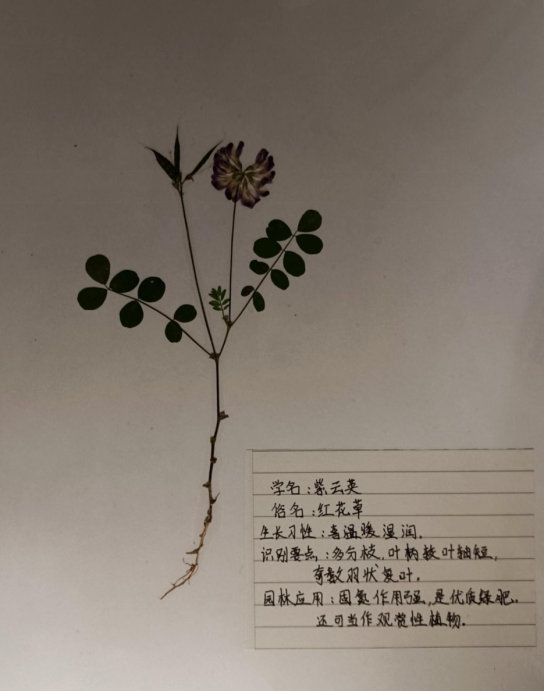 学名:紫云英
俗名:红花草
生长习性:喜温暖湿润。
识别要点:多分枝,叶柄较叶轴短,
奇数羽状复叶。
园林应用:固氮作用强,是优质绿肥。
还可当作观赏性植物。